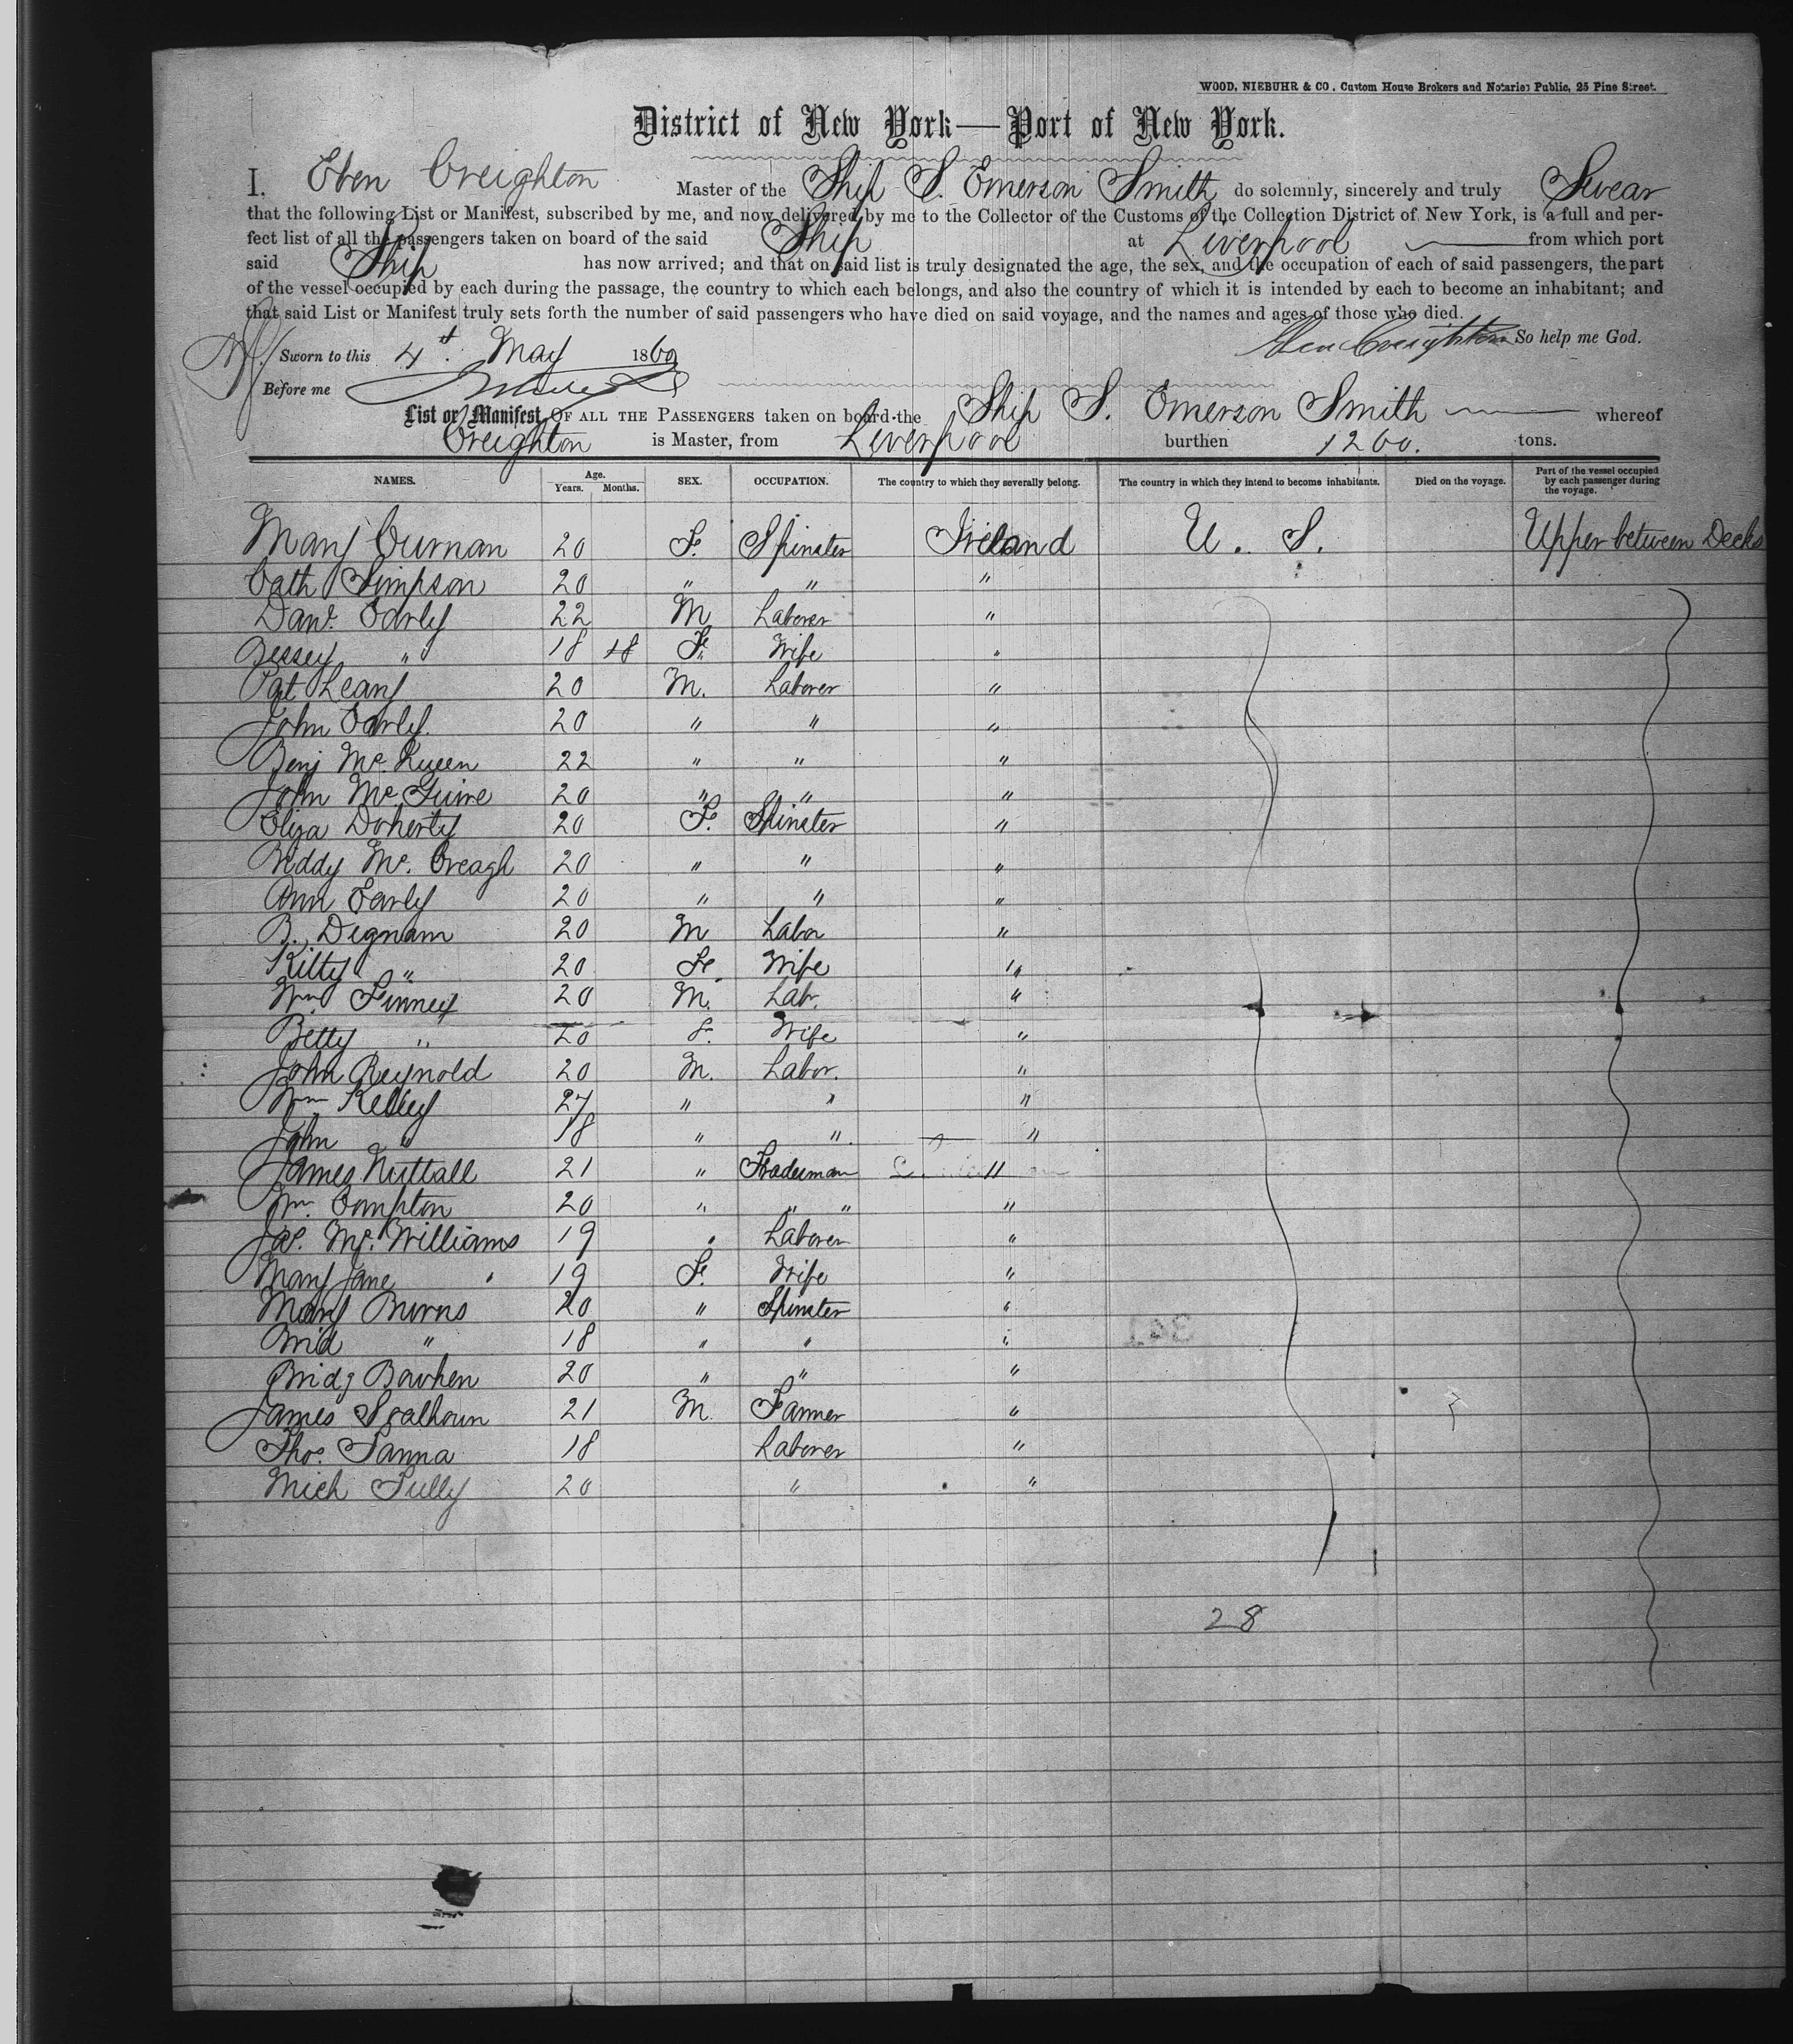 WOOD, NIEBUHR & CO. Custom House Brokers and Notaries Public, 25 Pine Street.
District of New York—Port of New York.
I. Eben Creighton Master of the Ship S. Emerson Smith do solemnly, sincerely and truly Swear
that the following List or Manifest, subscribed by me, and now delivered by me to the Collector of the Customs of the Collection District of New York, is a full and per-
fect list of all the passengers taken on board of the said Ship at Liverpool from which port
said Ship has now arrived; and that on said list is truly designated the age, the sex, and the occupation of each of said passengers, the part
of the vessel occupied by each during the passage, the country to which each belongs, and also the country of which it is intended by each to become an inhabitant; and
that said List or Manifest truly sets forth the number of said passengers who have died on said voyage, and the names and ages of those who died.
Eben Creighton So help me God.
Sworn to this 4th May 1860
Before me
List or Manifest OF ALL THE PASSENGERS taken on board the Ship S. Emerson Smith whereof
Creighton is Master, from Liverpool burthen 1200. tons.
NAMES. Age. Years. Months. SEX. OCCUPATION. The country to which they severally belong. The country in which they intend to become inhabitants. Died on the voyage. Part of the vessel occupied by each passenger during the voyage.
Mary Curnan 20 F. Spinster Ireland U. S. Upper between Decks
Cath Simpson 20 " " "
Danl. Early 22 M Laborer "
Bessey " 18 18 Fe Wife "
Pat Leary 20 M. Laborer "
John Early 20 " " "
Benj Mc. Queen 22 " " "
John Mc Guire 20 " " "
Eliza Doherty 20 F. Spinster "
Biddy Mc. Creagh 20 " " "
Ann Early 20 " " "
B. Dignam 20 M Labor "
Kitty " 20 Fe Wife "
Wm Finney 20 M. Labr. "
Betty " 20 F. Wife "
John Reynold 20 M. Labor. "
Wm Kelley 27 " " "
John " 18 " " "
James Nuttall 21 " Tradesman "
Wm. Compton 20 " " " "
Jas. Mc. Williams 19 " Laborer "
Mary Jane " 19 F. Wife "
Mary Burns 20 " Spinster "
Brid " 18 " " "
Bridg Bawhen 20 " " "
James Scalhoun 21 M. Farmer "
Thos. Tanna 18 Laborer "
Mich Tully 20 " "
28